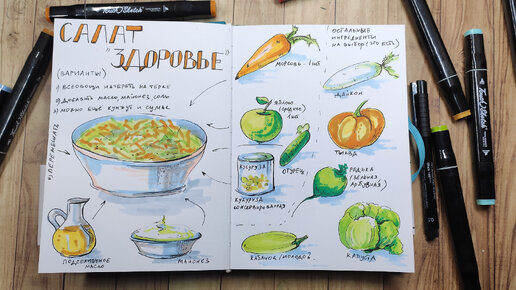 САЛАТ
"ЗДОРОВЬЕ"
(ВАРИАНТЫ)
1) ВСЕ ОВОЩИ НАТЕРЕТЬ НА ТЕРКЕ
2) ДОБАВИТЬ МАСЛО, МАЙОНЕЗ, СОЛЬ
3) МОЖНО ЕЩЕ КУНЖУТ И СУМАХ
4) ПЕРЕМЕШАТЬ
ПОДСОЛНЕЧНОЕ
МАСЛО
МАЙОНЕЗ
МОРКОВЬ - 1 ШТ
ЯБЛОКО
(СРЕДНЕЕ)
1 ШТ
КУКУРУЗА
ОГУРЕЦ
КУКУРУЗА
КОНСЕРВИРОВАННАЯ
КАБАЧОК / МОЛОДОЙ
ОСТАЛЬНЫЕ
ИНГРЕДИЕНТЫ
НА ВЫБОР (ЧТО ЕСТЬ)
ДАЙКОН
ТЫКВА
РЕДЬКА
(ЗЕЛЕНАЯ
АРБУЗНАЯ)
КАПУСТА
Touch Sketch